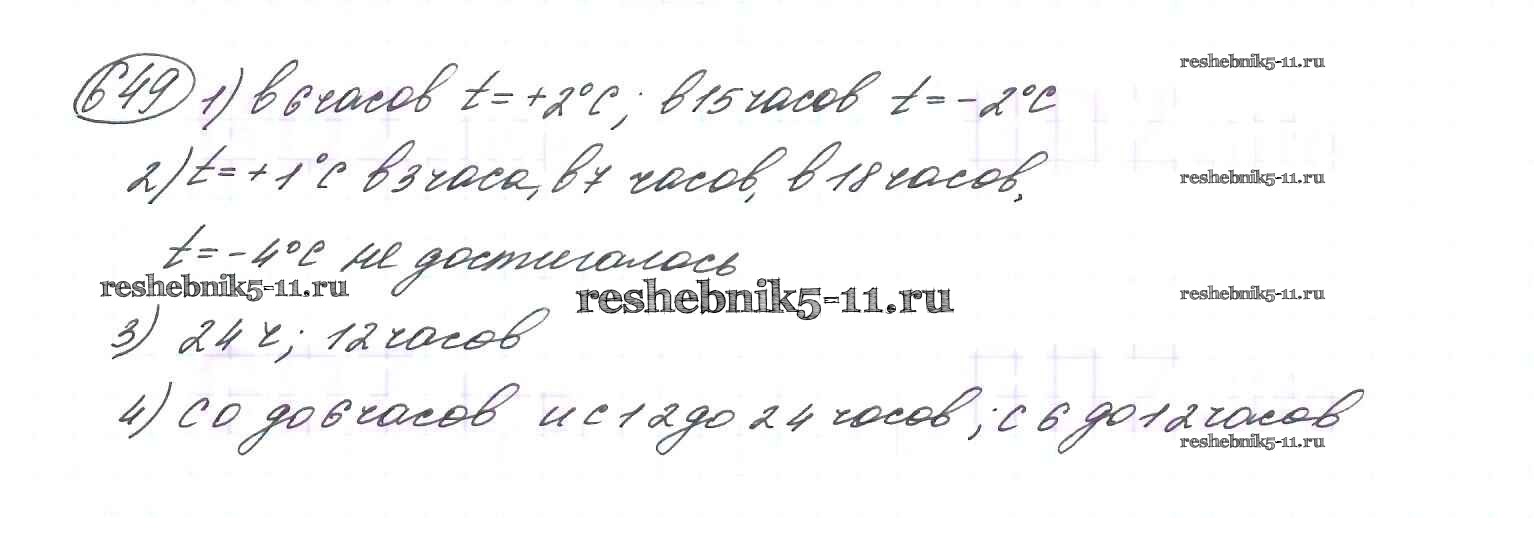 649 1) в 6 часов t = +2°C; в 15 часов t = -2°C
reshebnik5-11.ru
2) t = +1°C в 3 часа, в 7 часов, в 18 часов,
reshebnik5-11.ru
t = -4°C не достигалось
reshebnik5-11.ru
reshebnik5-11.ru
reshebnik5-11.ru
3) 24 ч; 12 часов
4) С 0 до 6 часов и с 12 до 24 часов; с 6 до 12 часов
reshebnik5-11.ru